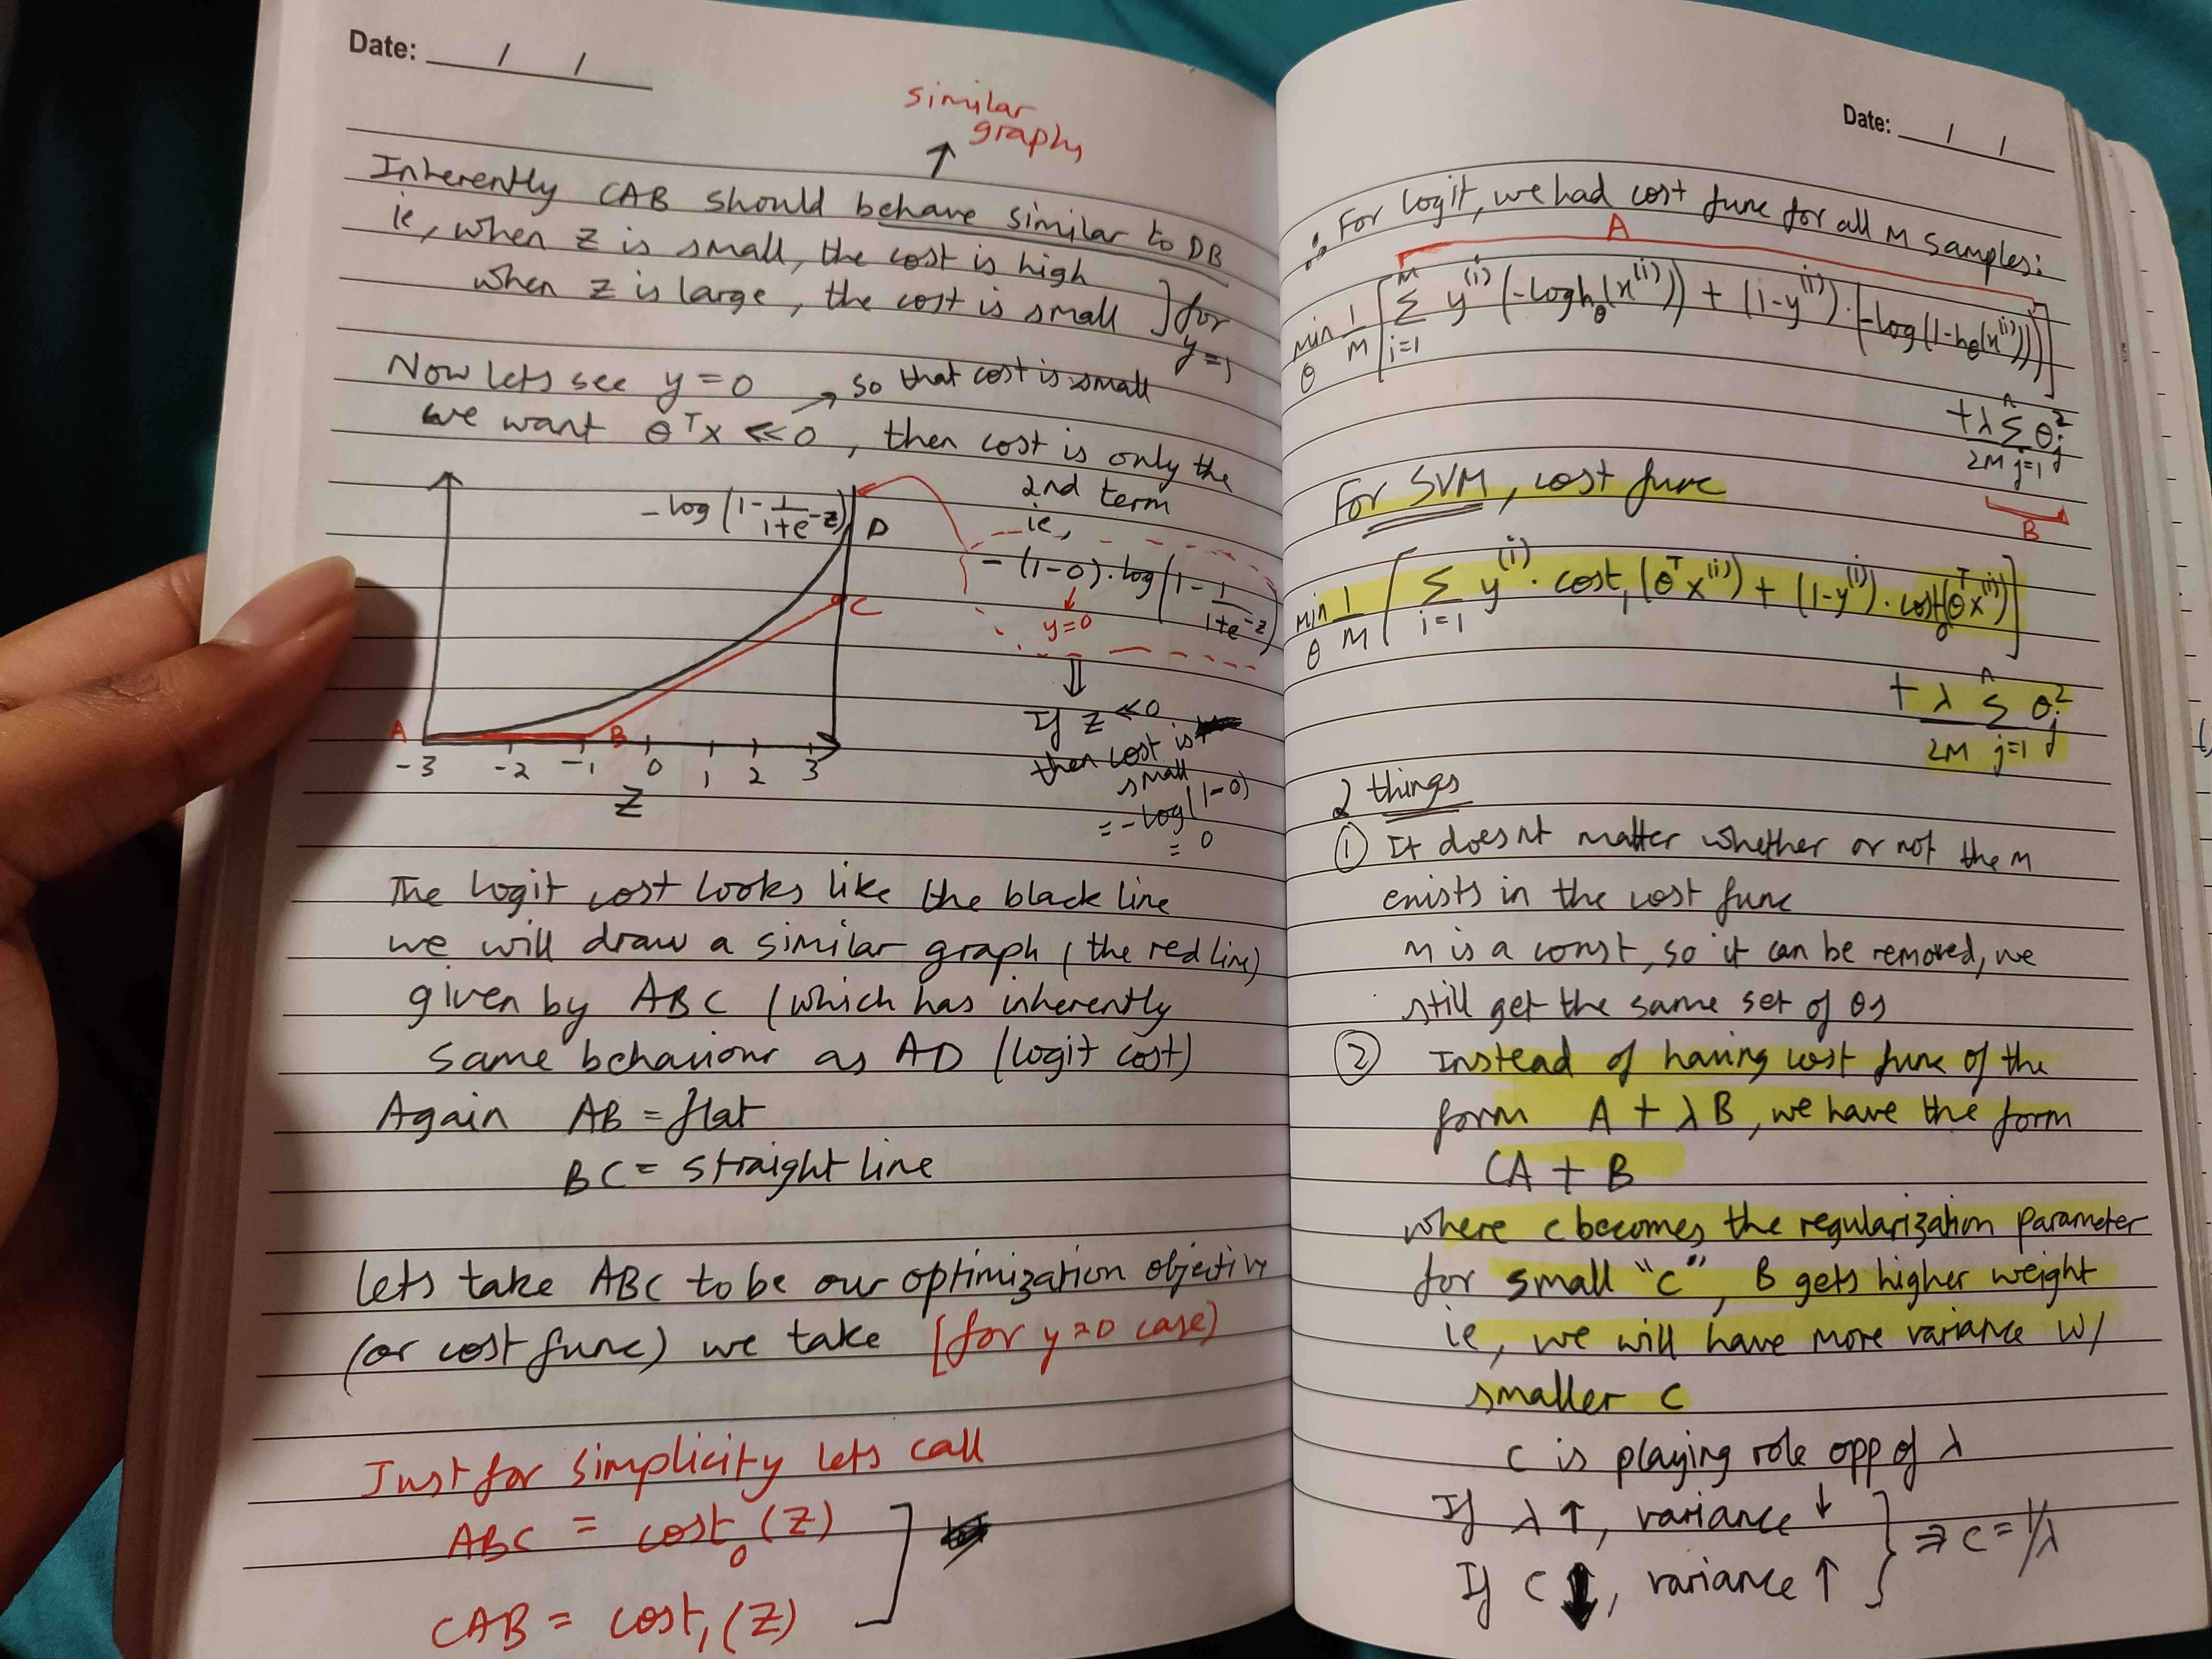 Date: / /
similar
graphs
Inherently CAB should behave similar to DB
ie, when z is small, the cost is high
when z is large, the cost is small ] for
y=1
Now lets see y=0 → so that cost is small
we want θᵀx ≪ 0, then cost is only the
2nd term
ie,
- (1-0) . log(1 - 1/(1+e^-z))
y=0
-log(1 - 1/(1+e^-z)) D
C
A B
-3 -2 -1 0 1 2 3
Z
⇓
If z ≪ 0
then cost is
small
= -log(1-0)
= 0
The logit cost looks like the black line
we will draw a similar graph (the red line)
given by ABC (which has inherently
same behaviour as AD (logit cost)
Again AB = flat
BC = straight line
Lets take ABC to be our optimization objective
(or cost func) we take [for y=0 case)
Just for simplicity lets call
ABC = cost₀(Z)
CAB = cost₁(Z)
Date: / /
∴ For logit, we had cost func for all M samples:
A
min θ 1/M [ Σ_{i=1}^{M} y^(i) (-log h_θ(x^(i))) + (1-y^(i)) . (-log(1-h_θ(x^(i)))) ]
+ λ/2M Σ_{j=1}^{n} θ_j^2
B
For SVM, cost func
min θ 1/M [ Σ_{i=1} y^(i) . cost₁(θᵀx^(i)) + (1-y^(i)) . cost₀(θᵀx^(i)) ]
+ λ/2M Σ_{j=1}^{n} θ_j^2
2 things
① It doesnt matter whether or not the M
exists in the cost func
M is a const, so it can be removed, we
still get the same set of θs
② Instead of having cost func of the
form A + λB, we have the form
CA + B
where c becomes the regularization parameter
for small "c", B gets higher weight
ie, we will have more variance w/
smaller c
C is playing role opp of λ
If λ ↑, variance ↓
If C ↓, variance ↑ } ⇒ c = 1/λ